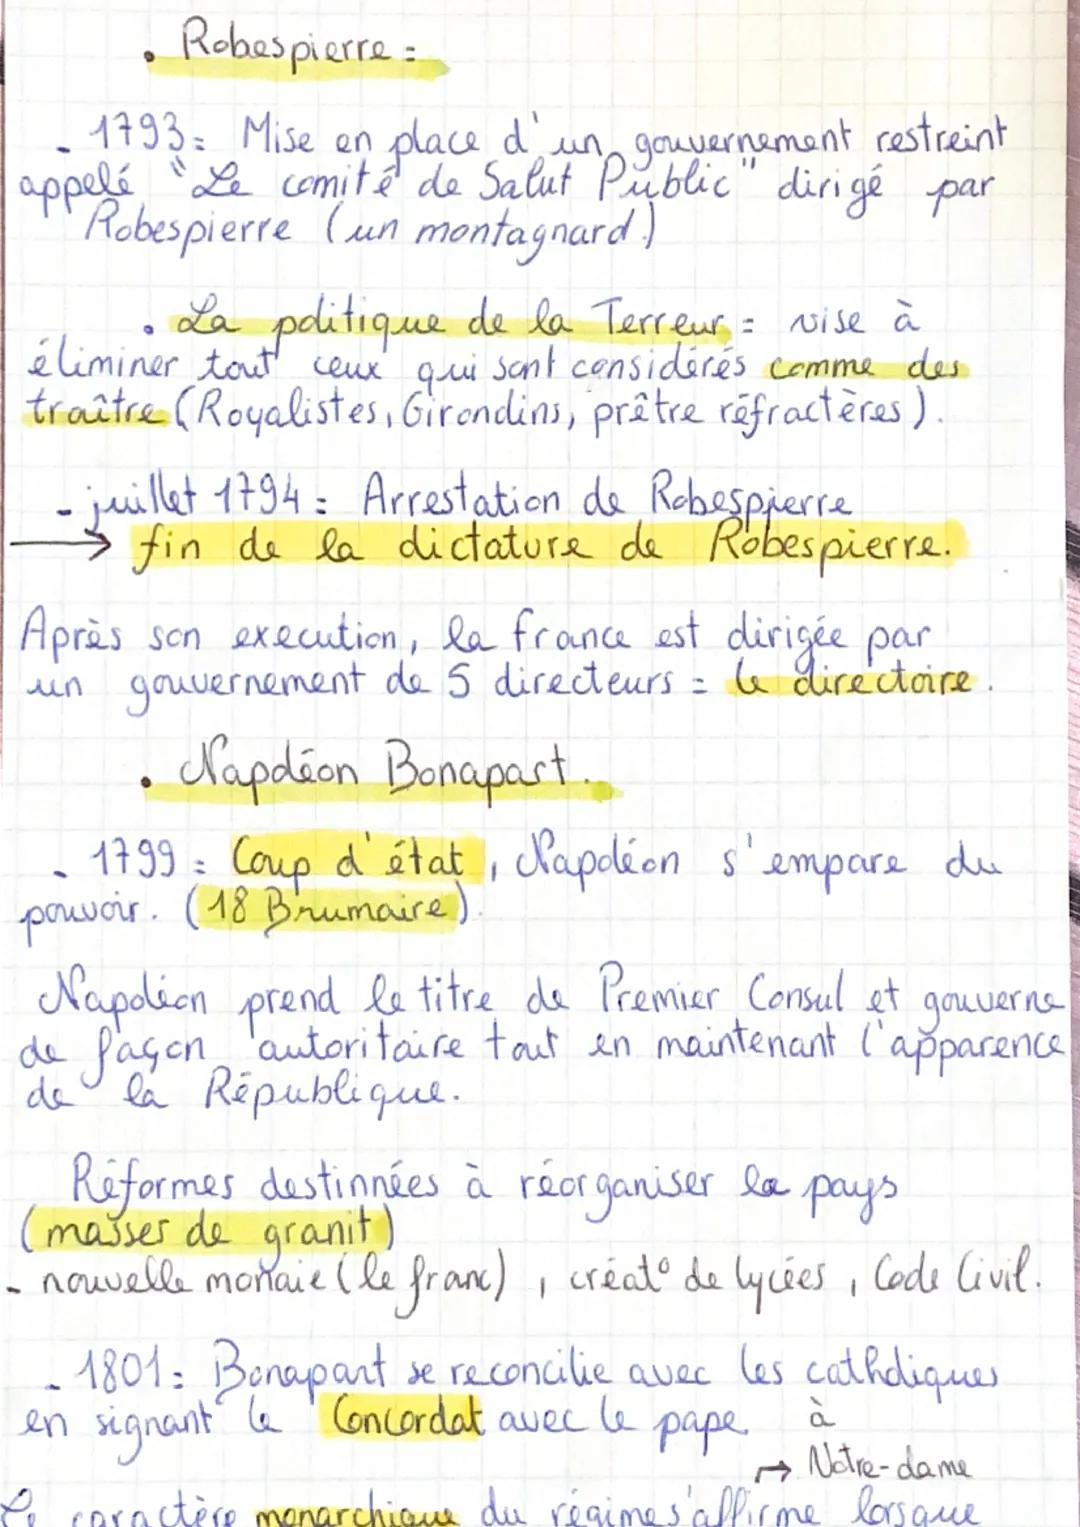 . Robespierre =
- 1793 = Mise en place d'un gouvernement restreint
appelé "Le comité de Salut Public" dirigé par
Robespierre (un montagnard.)
. La politique de la Terreur = vise à
éliminer tout ceux qui sont considérés comme des
traître (Royalistes, Girondins, prêtre réfractères).
- juillet 1794 = Arrestation de Robespierre
→ fin de la dictature de Robespierre.
Après son execution, la france est dirigée par
un gouvernement de 5 directeurs = le directoire.
. Napoléon Bonapart.
- 1799 = Coup d'état, Napoléon s'empare du
pouvoir. (18 Brumaire).
Napoléon prend le titre de Premier Consul et gouverne
de façon autoritaire tout en maintenant l'apparence
de la République.
Réformes destinnées à réorganiser le pays
(masses de granit)
- nouvelle monaie (le franc), créat° de lycées, Code Civil.
- 1801 = Bonapart se reconcilie avec les catholiques
en signant le Concordat avec le pape à
→ Notre-dame
Le caractère monarchique du régime s'affirme lorsque